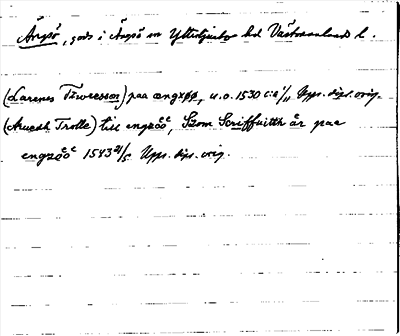 Ängsö, gods i Ängsö sn Yttertjurbo hd Västmanlands l.
(Larenes Twresson) paa œngxøø, u.o. 1530 c:a 1/11 Upps. dipl. orig.
(Aruedh Trolle) till engzöö, Szom Scriffuitth är paa
engzöö 1543 21/5 Upps. dipl. orig.